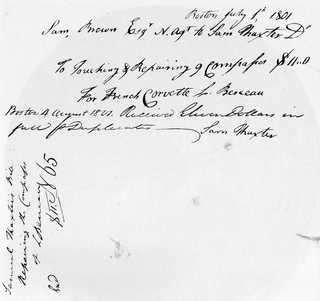 Boston July 1st 1801
Sam Brown Esqr N. Agt to Sam Thaxter Dr
To Touching & Repairing 9 Compasses $11.0
For French Corvette Le Berceau
Boston 4 August 1801. Received Eleven Dollars in
full Duplicates
Sam Thaxter
Samuel Thaxter's
Repairing the Compasses
of L Berceau
$11
65